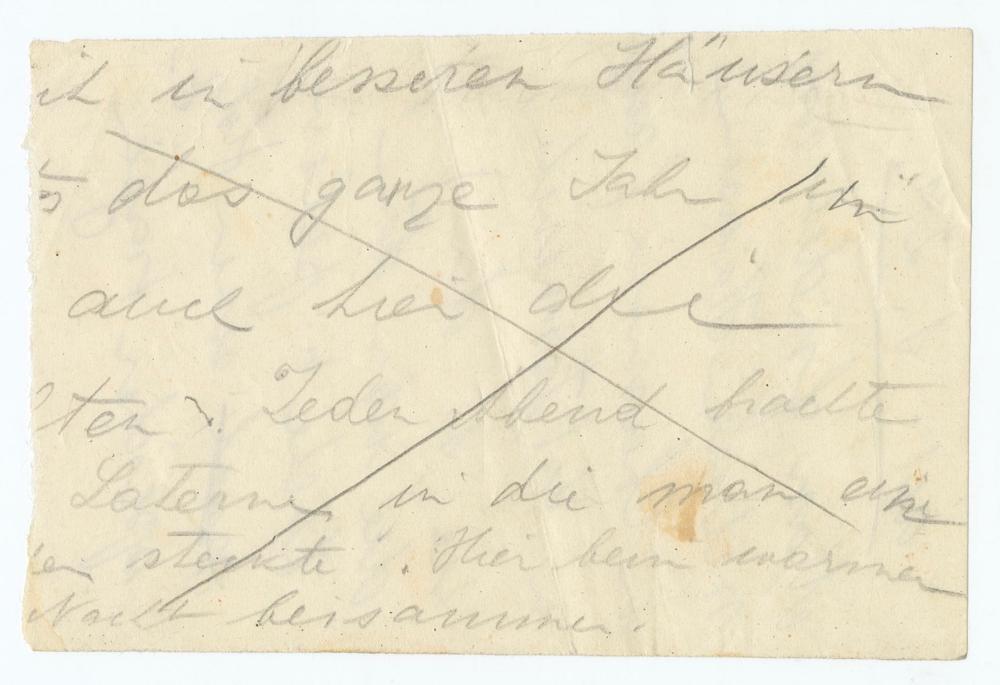 in besseren Häusern
das ganze Jahr
auch hier die
ten. Jeden Abend brachte
Laterne in die man eine
steckte. Hier beim warmen
Nacht beisammen.